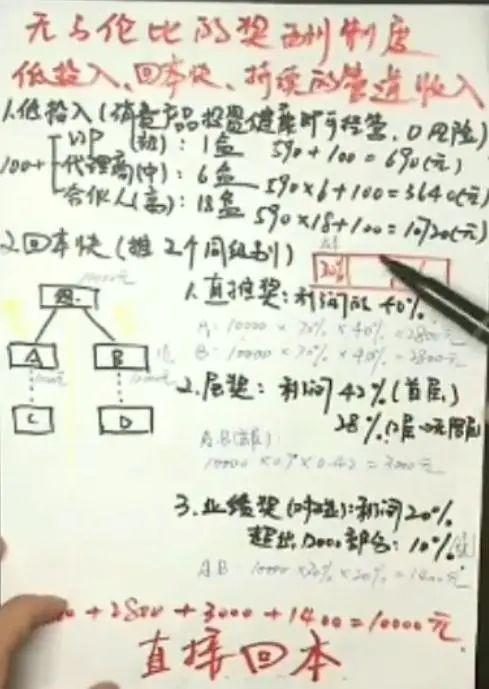 无与伦比的奖酬制度
低投入、回本快、持续的管道收入
1.低投入(消费产品投资健康即可经营、0风险)
100+
VIP (初): 1盒 590+100=690(元)
代理商(中): 6盒 590×6+100=3640(元)
合伙人(高): 18盒 590×18+100=10720(元)
2.回本快(推2个同级别)
10000元
30%
1.直推奖:利润的40%
A: 10000×70%×40%=2800元
A
B
B: 10000×70%×40%=2800元
10000元
10000元
C
D
2.层奖:利润42%(首层)
28%
A.B(首层):
10000×0.7×0.42=3000元
3.业绩奖(对碰):利润20%
超出 部分:10%
A.B: 10000×70%×20%=1400元
+2800+3000+1400=10000元.
直接回本